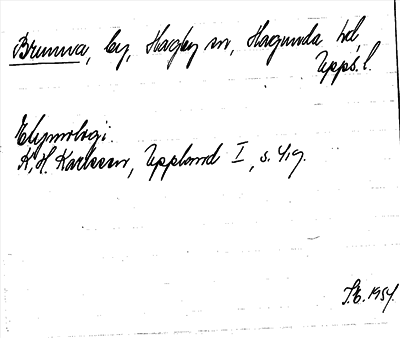 Brunnva, by, Hagby sn, Hagunda hd
Upps. l.
Etymologi.
K. H. Karlsson, Uppland I, s. 419.
S.E. 1954.